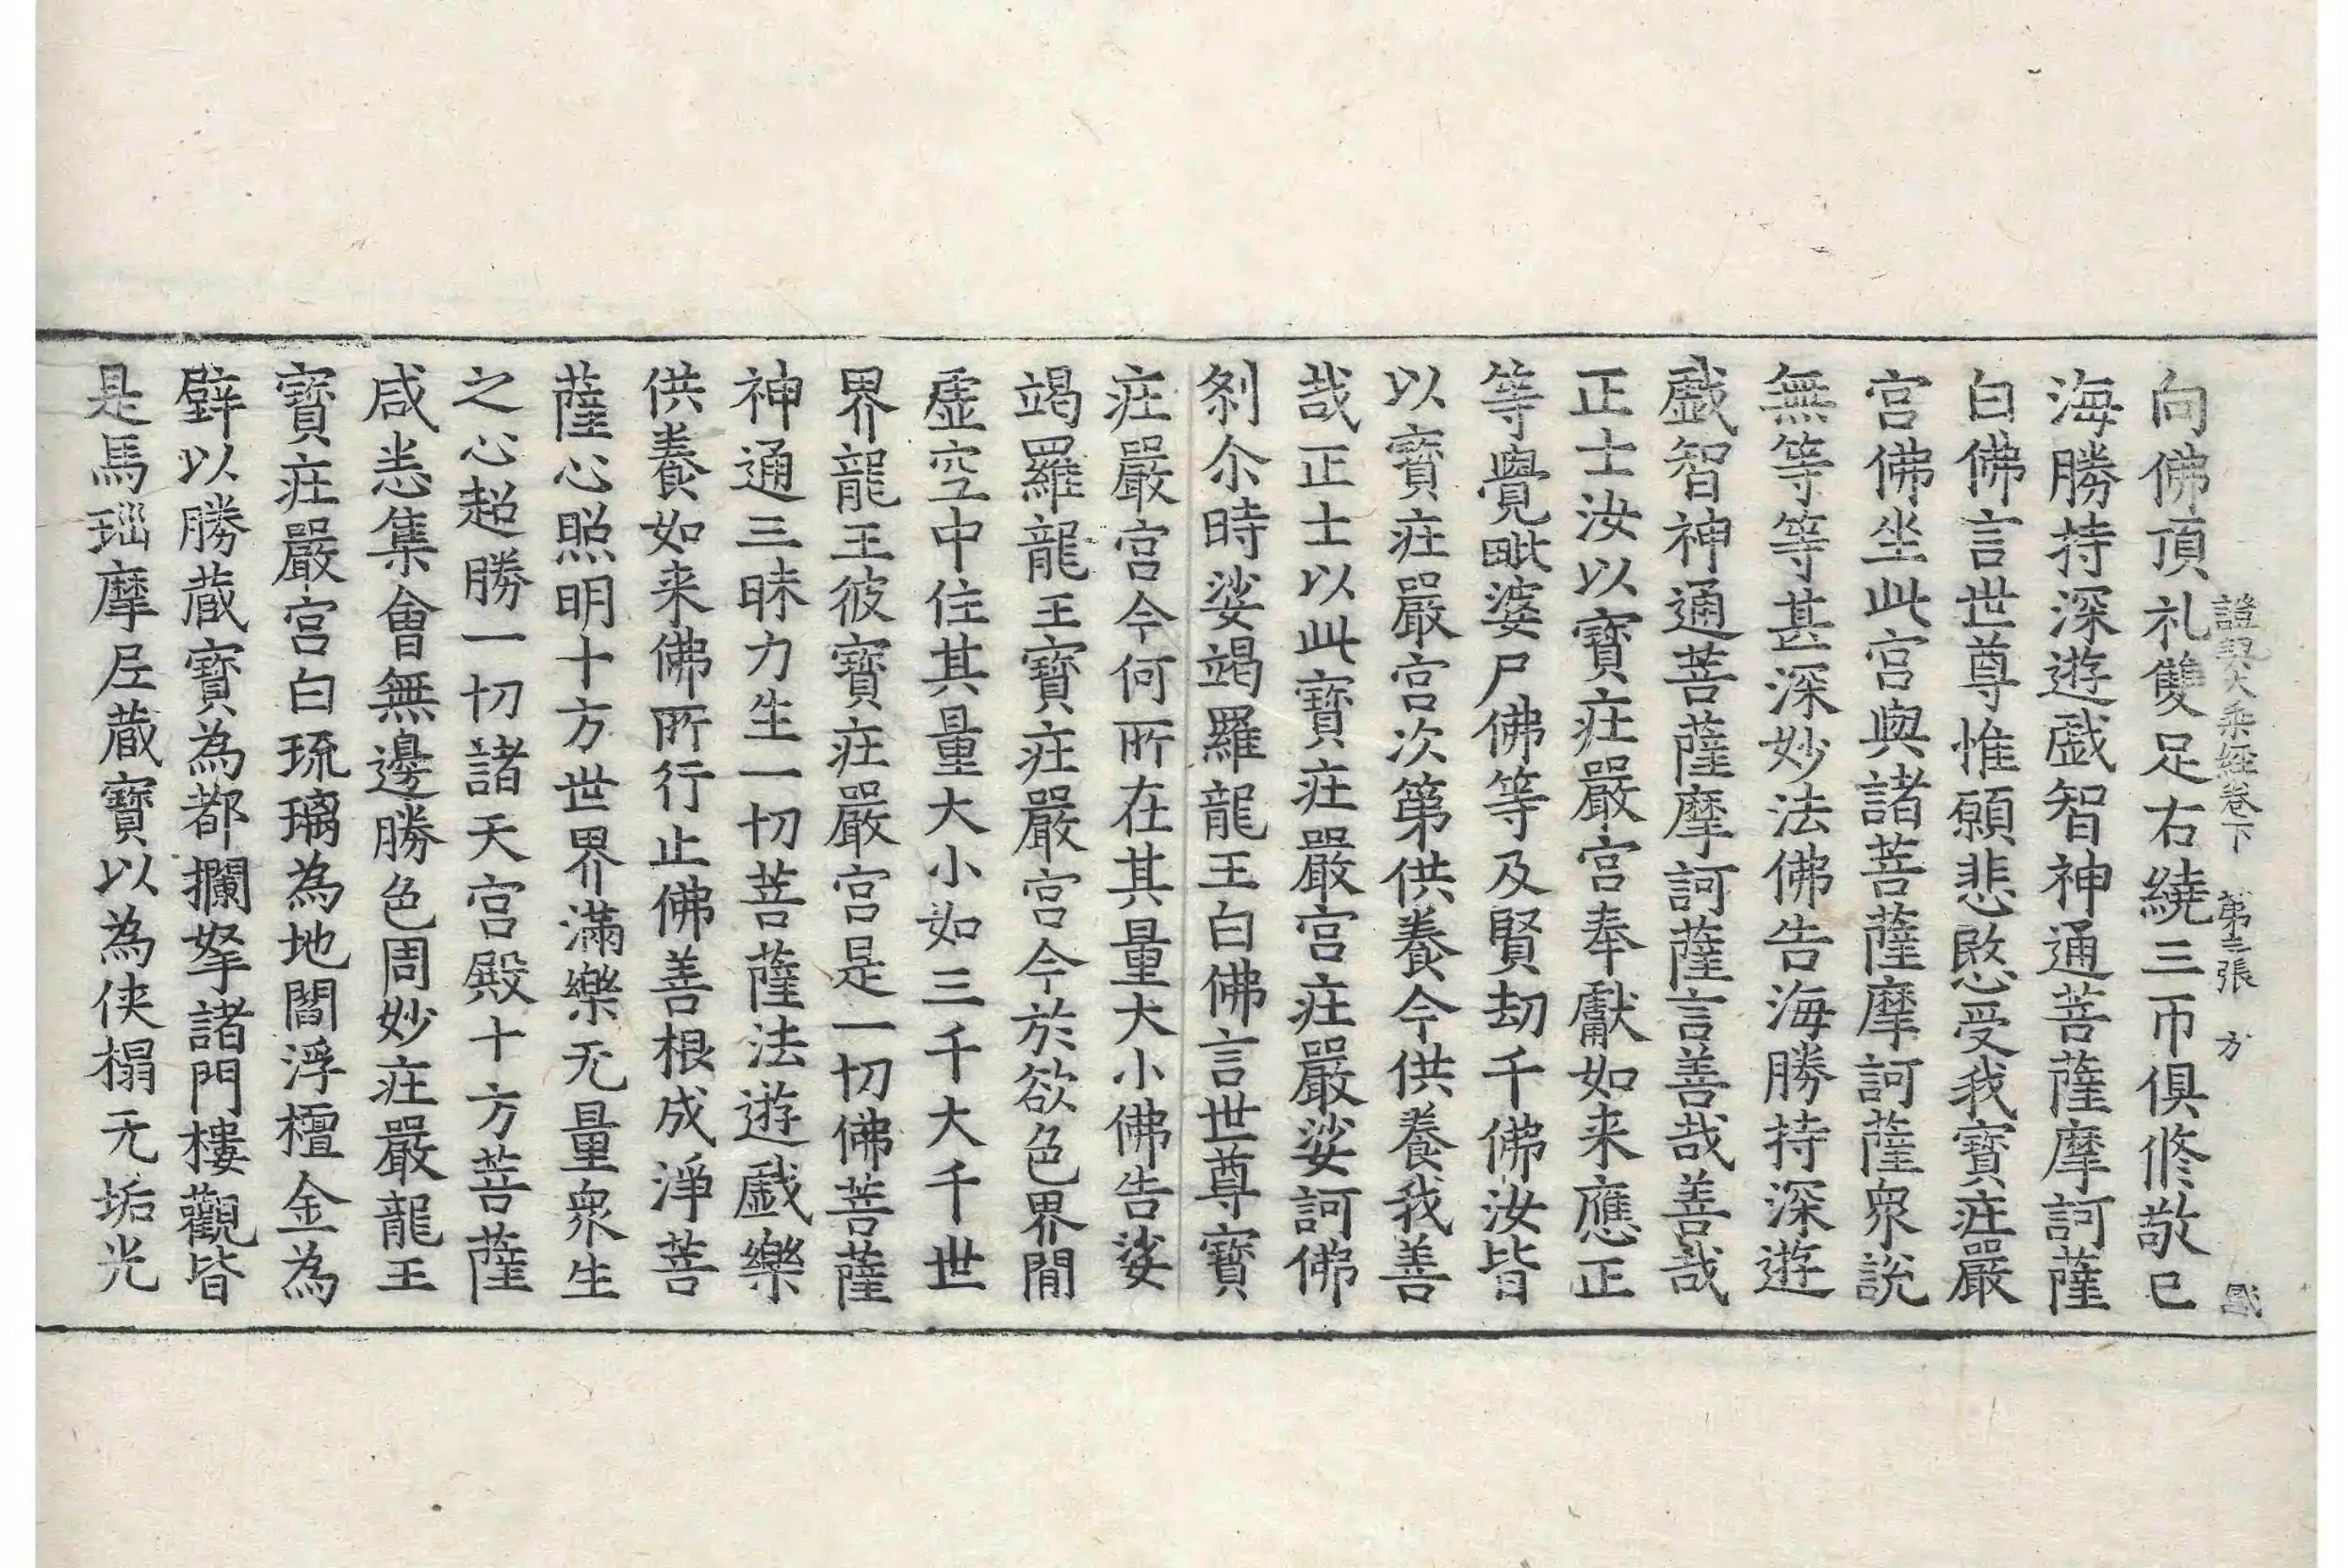 證契大乘経卷下 第三張 方
向佛頂礼雙足右繞三帀俱修敬已
海勝持深遊戯智神通菩薩摩訶薩
白佛言世尊惟願悲愍受我寳莊嚴
宫佛坐此宫與諸菩薩摩訶薩衆說
無等等甚深妙法佛告海勝持深遊
戯智神通菩薩摩訶薩言善哉善哉
正士汝以寳莊嚴宫奉獻如来應正
等覺毗婆尸佛等及賢劫千佛汝皆
以寳莊嚴宫次第供養今供養我善
哉正士以此寳莊嚴宫莊嚴娑訶佛
刹尒時娑竭羅龍王白佛言世尊寳
莊嚴宫今何所在其量大小佛告娑
竭羅龍王寳莊嚴宫今於欲色界閒
虚空中住其量大小如三千大千世
界龍王彼寳莊嚴宫是一切佛菩薩
神通三昧力生一切菩薩法遊戯樂
供養如来佛所行止佛善根成淨菩
薩心照明十方世界滿樂无量衆生
之心超勝一切諸天宫殿十方菩薩
咸悉集會無邊勝色周妙莊嚴龍王
寳莊嚴宫白琉璃為地閻浮檀金為
壁以勝蔵寳為都攔拏諸門樓觀皆
是馬瑙摩𡰱蔵寳以為俠榻无垢光